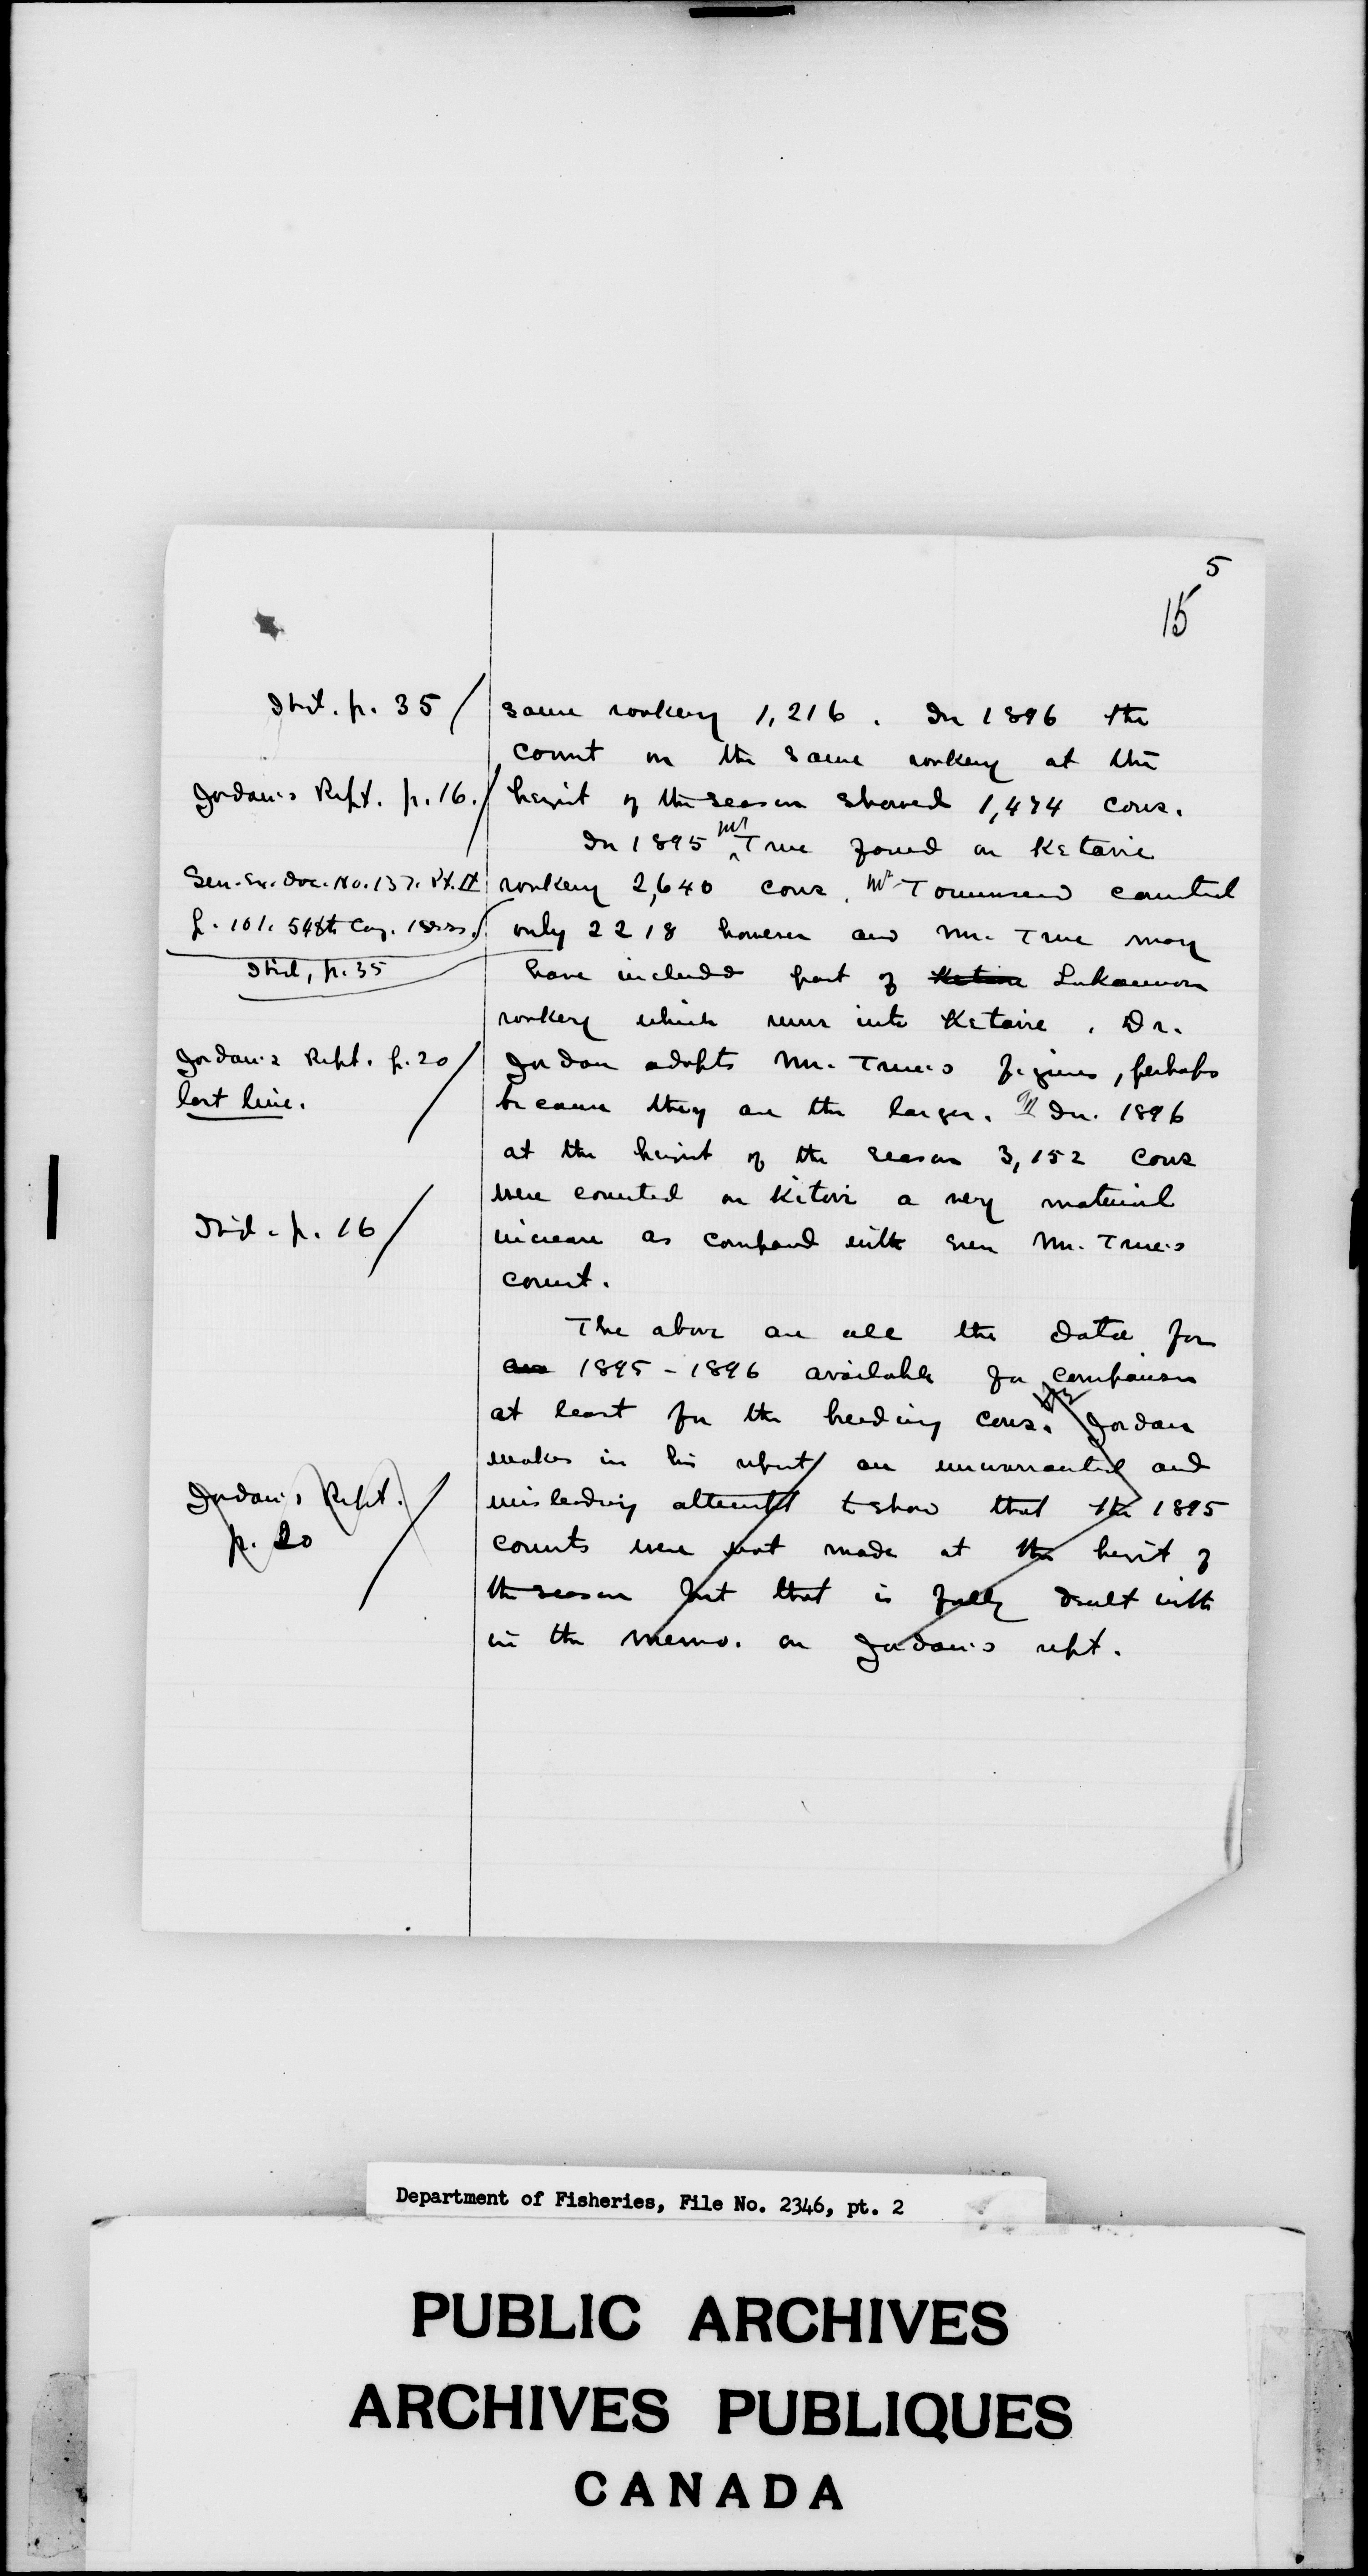 5
15
Ibid. p. 35
same rookery 1,216. In 1896 the
count on the same rookery at the
Jordan's Rept. p. 16.
height of the season showed 1,474 cows.
In 1895 Mr True found on Ketavie
Sen. Ex. Doc. No. 137. Pt. II
rookery 2,640 cows. Mr Townsend counted
p. 101. 54th Cong. 1 Sess.
only 2218 however and Mr. True may
Ibid, p. 35
have included part of Ketavie Lukannon
rookery which runs into Ketavie. Dr.
Jordan's Rept. p. 20
Jordan adopts Mr. True's figures, perhaps
last line.
because they are the larger. In 1896
at the height of the season 3,152 cows
were counted on Kitovi a very material
Ibid. p. 16
increase as compared with even Mr. True's
count.
The above are all the data for
1895-1896 available for comparison
at least for the breeding cows. Dr Jordan
makes in his report an unwarranted and
Jordan's Rept.
misleading attempt to show that the 1895
p. 20
counts were not made at the height of
the season but that is fully dealt with
in the memo. on Jordan's rept.
Department of Fisheries, File No. 2346, pt. 2
PUBLIC ARCHIVES
ARCHIVES PUBLIQUES
CANADA